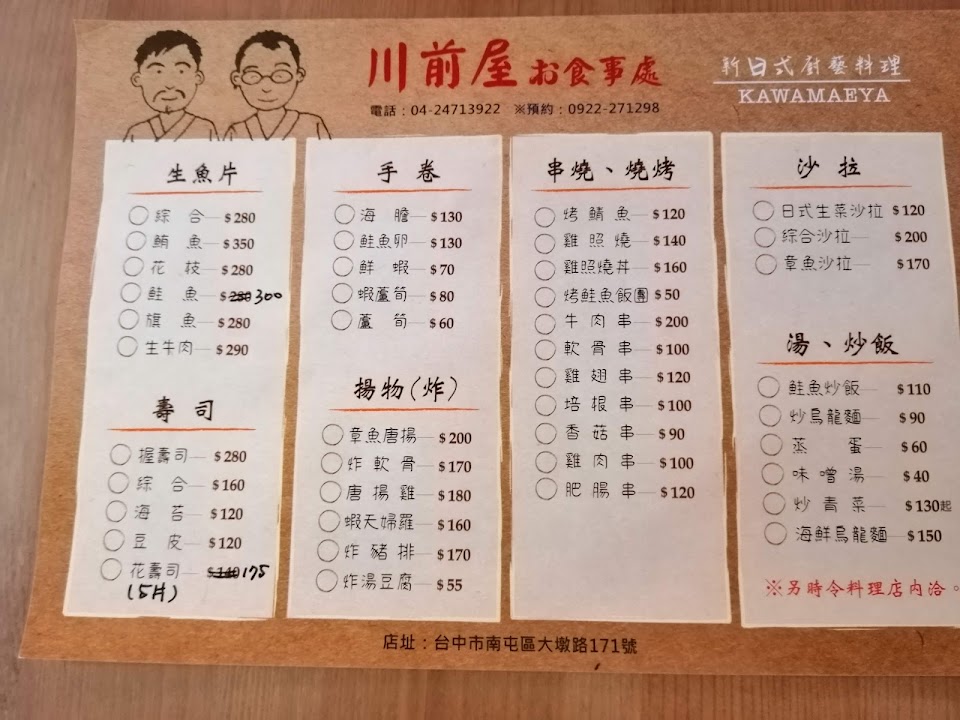 川前屋 お食事處
新日式廚藝料理
KAWAMAEYA
電話：04-24713922 ※預約：0922-271298
生魚片
綜合 $280
鮪魚 $350
花枝 $280
鮭魚 $280 300
旗魚 $280
生牛肉 $290
壽司
握壽司 $280
綜合 $160
海苔 $120
豆皮 $120
花壽司 $140 175
(5片)
手卷
海膽 $130
鮭魚卵 $130
鮮蝦 $70
蝦蘆筍 $80
蘆筍 $60
揚物(炸)
章魚唐揚 $200
炸軟骨 $170
唐揚雞 $180
蝦天婦羅 $160
炸豬排 $170
炸湯豆腐 $55
串燒、燒烤
烤鯖魚 $120
雞照燒 $140
雞照燒丼 $160
烤鮭魚飯糰 $50
牛肉串 $200
軟骨串 $100
雞翅串 $120
培根串 $100
香菇串 $90
雞肉串 $100
肥腸串 $120
沙拉
日式生菜沙拉 $120
綜合沙拉 $200
章魚沙拉 $170
湯、炒飯
鮭魚炒飯 $110
炒烏龍麵 $90
蒸蛋 $60
味噌湯 $40
炒青菜 $130起
海鮮烏龍麵 $150
※另時令料理店內洽。
店址：台中市南屯區大墩路171號